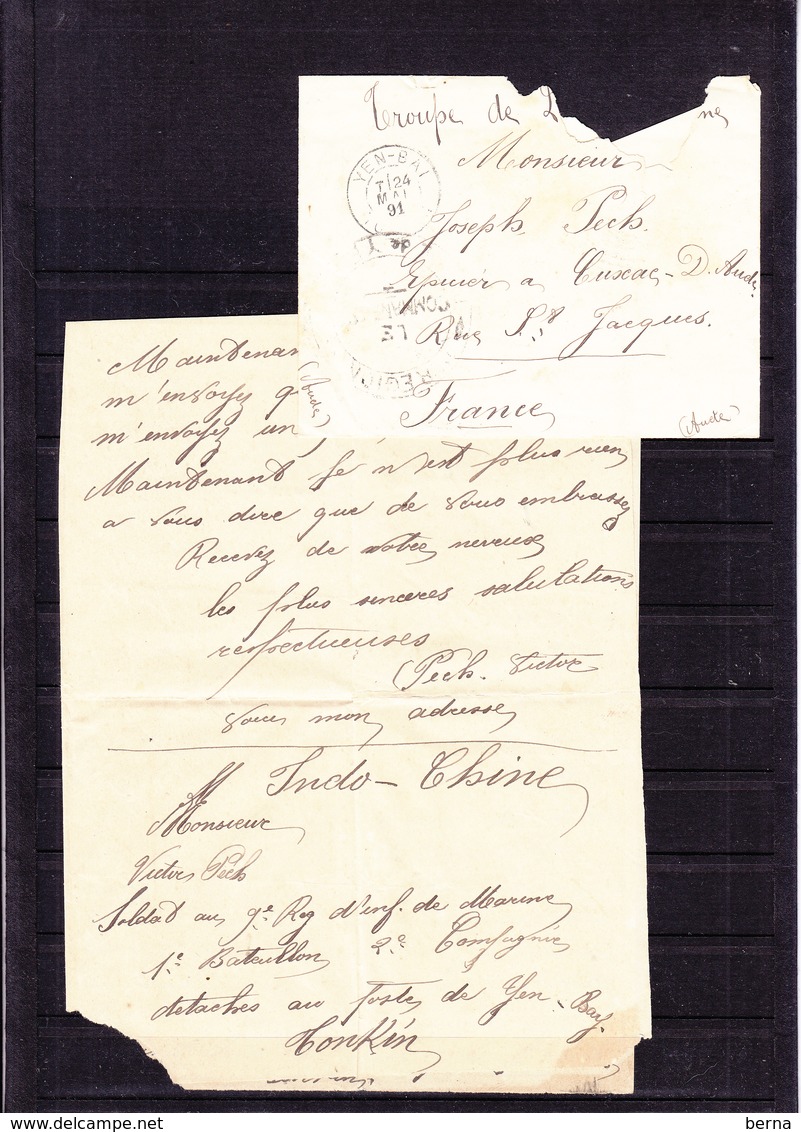 Troupe de
Monsieur
Joseph Pech.
Epicier a Cuxac-D. Aude
Rue St Jacques.
France
(Aude)
(Aude)
YEN-BAI
24
MAI
91
Maintenant
m'envoyez
m'envoyez un
Maintenant Je n'est plus rien
a vous dire que de vous embrassez
Recevez de votre neveux
les plus sinceres salutations
respectueuses
Pech. Victor
mon adresse
Indo-Chine
M
Monsieur
Victor Pech
Soldat au 9e Reg d'inf. de Marine
1e Bataillon 2e Compagnie
detaches au poste de Yen-Bay.
Tonkin
berna